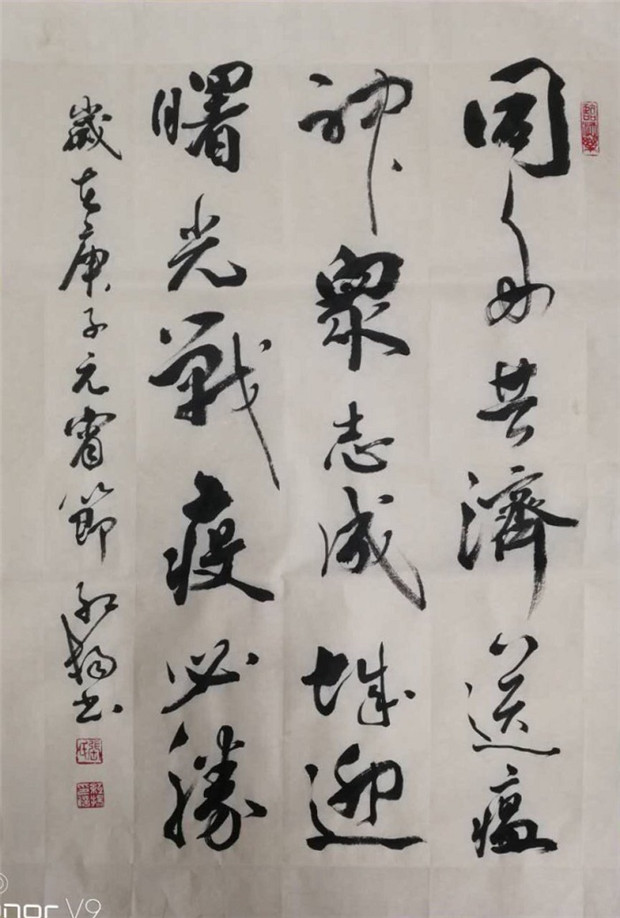 同舟共濟送瘟
神眾志成城迎
曙光戰疫必勝
歲在庚子元宵節 紅楊書
honor V9